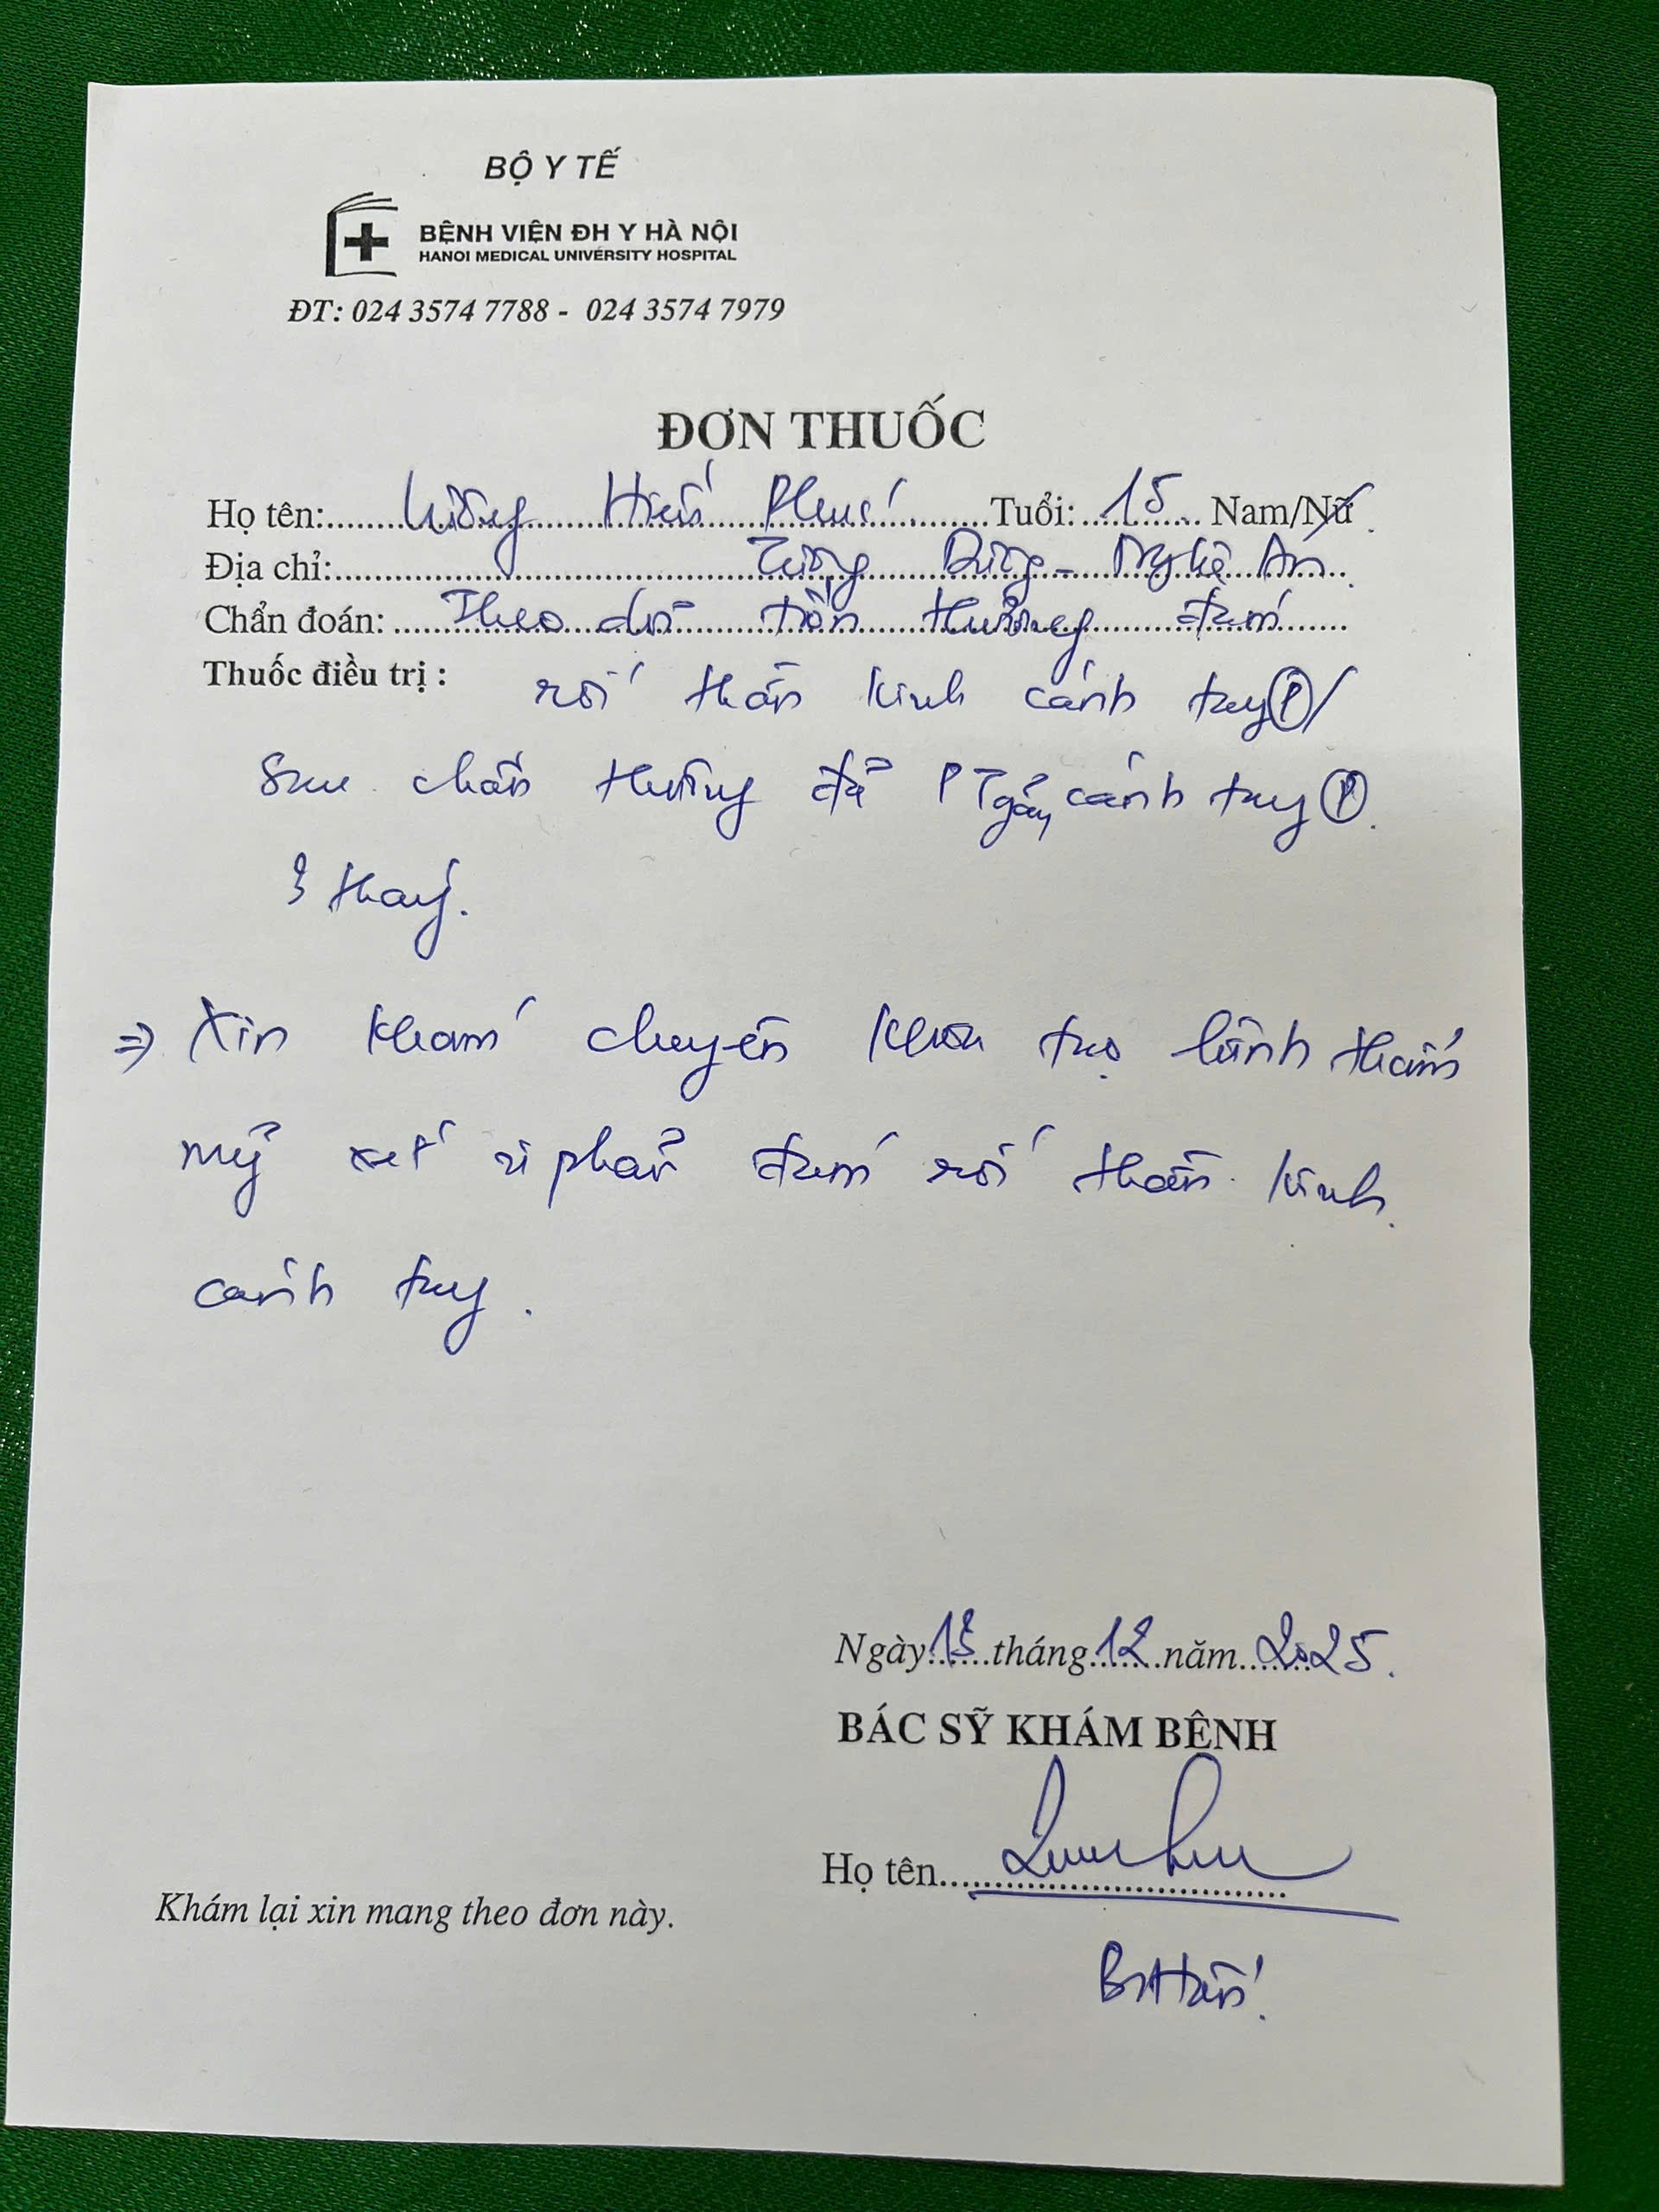 BỘ Y TẾ
BỆNH VIỆN ĐH Y HÀ NỘI
HANOI MEDICAL UNIVERSITY HOSPITAL
ĐT: 024 3574 7788 - 024 3574 7979
ĐƠN THUỐC
Họ tên: Lương Hiếu Phúc Tuổi: 15 Nam/Nữ
Địa chỉ: Tương Dương - Nghệ An
Chẩn đoán: Theo dõi tổn thương đám
Thuốc điều trị : rối thần kinh cánh tay (P) /
Sau chấn thương đã PT gãy cánh tay (P).
3 tháng.
=> Xin khám chuyên khoa tạo hình thẩm
mỹ xét vi phẫu đám rối thần kinh
cánh tay.
Ngày 13 tháng 12 năm 2025.
BÁC SỸ KHÁM BỆNH
Họ tên
Khám lại xin mang theo đơn này.